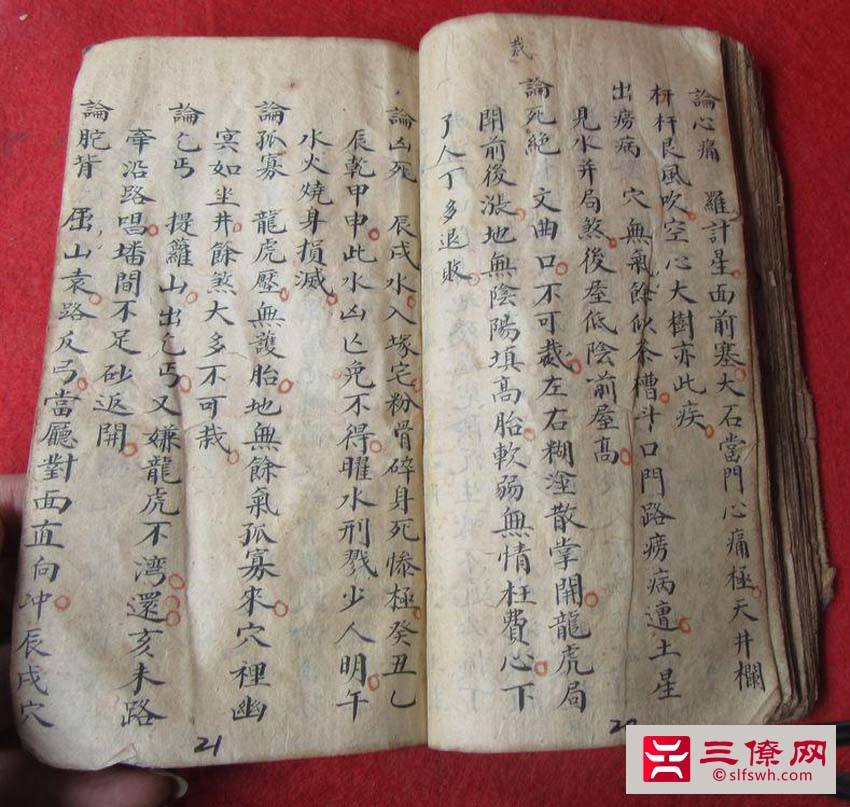 裁
論心痛 羅計星面前塞大石當門心痛極天井欄
杆杆艮風吹空心大樹亦此疾
出癆病 穴無氣餘似茶槽斗口門路癆病遭土星
見水并局煞後屋低陰前屋高
論死絕 文曲口不可裁左右糊塗散掌開龍虎局
開前後漲地無陰陽填高胎軟弱無情枉費心下
了人丁多退敗
20
論凶死 辰戌水入塚宅粉骨碎身死慘極癸丑乙
辰乾甲申此水凶亡免不得曜水刑戮少人明午
水火燒身損滅
論孤寡 龍虎壓無護胎地無餘氣孤寡來穴裡幽
冥如坐井餘煞大多不可裁
論乞丐 提籮山出乞丐又嫌龍虎不湾還亥未路
牽沿路唱墦間不足砂返開
論駝背 屈山袁路反弓當廳對面直向冲辰戌穴
21
三僚网
©slfswh.com